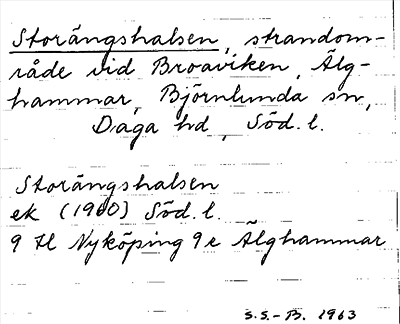 Storängshalsen, strandom-
råde vid Broaviken, Älg-
hammar, Björnlunda sn,
Daga hd, Söd. l.
Storängshalsen
ek (1960) Söd. l.
9 H Nyköping 9 e Älghammar
S.S.-B. 1963